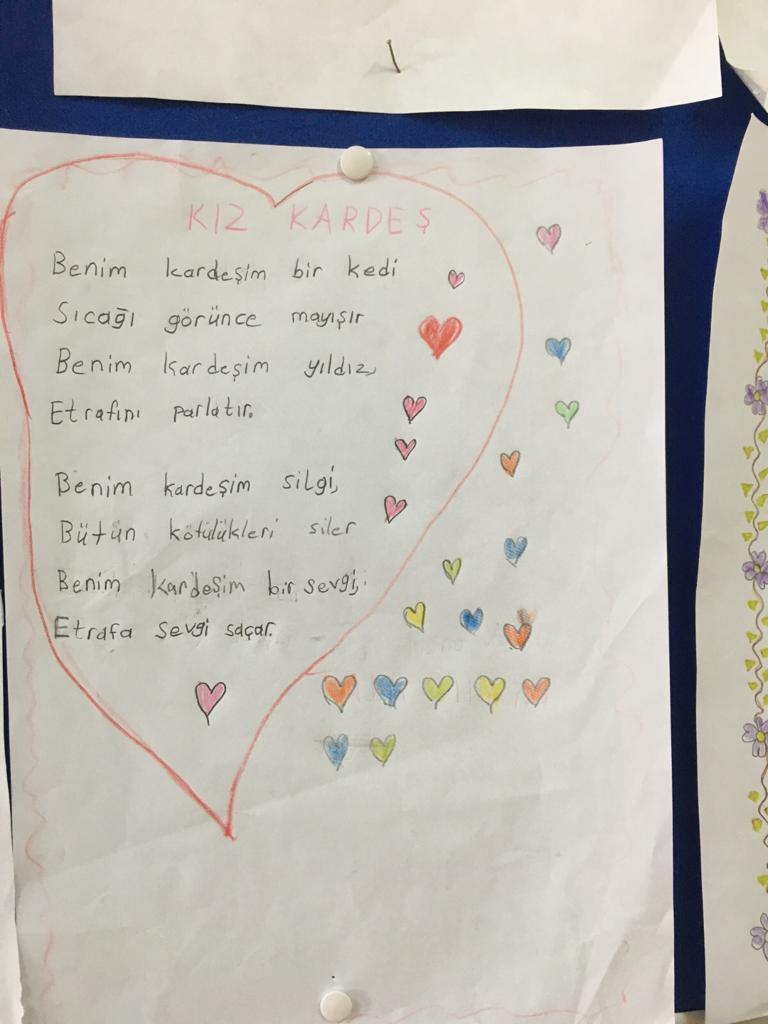 KIZ KARDEŞ
Benim kardeşim bir kedi
Sıcağı görünce mayışır
Benim kardeşim yıldız,
Etrafını parlatır.
Benim kardeşim silgi,
Bütün kötülükleri siler
Benim kardeşim bir sevgi,
Etrafa sevgi saçar.